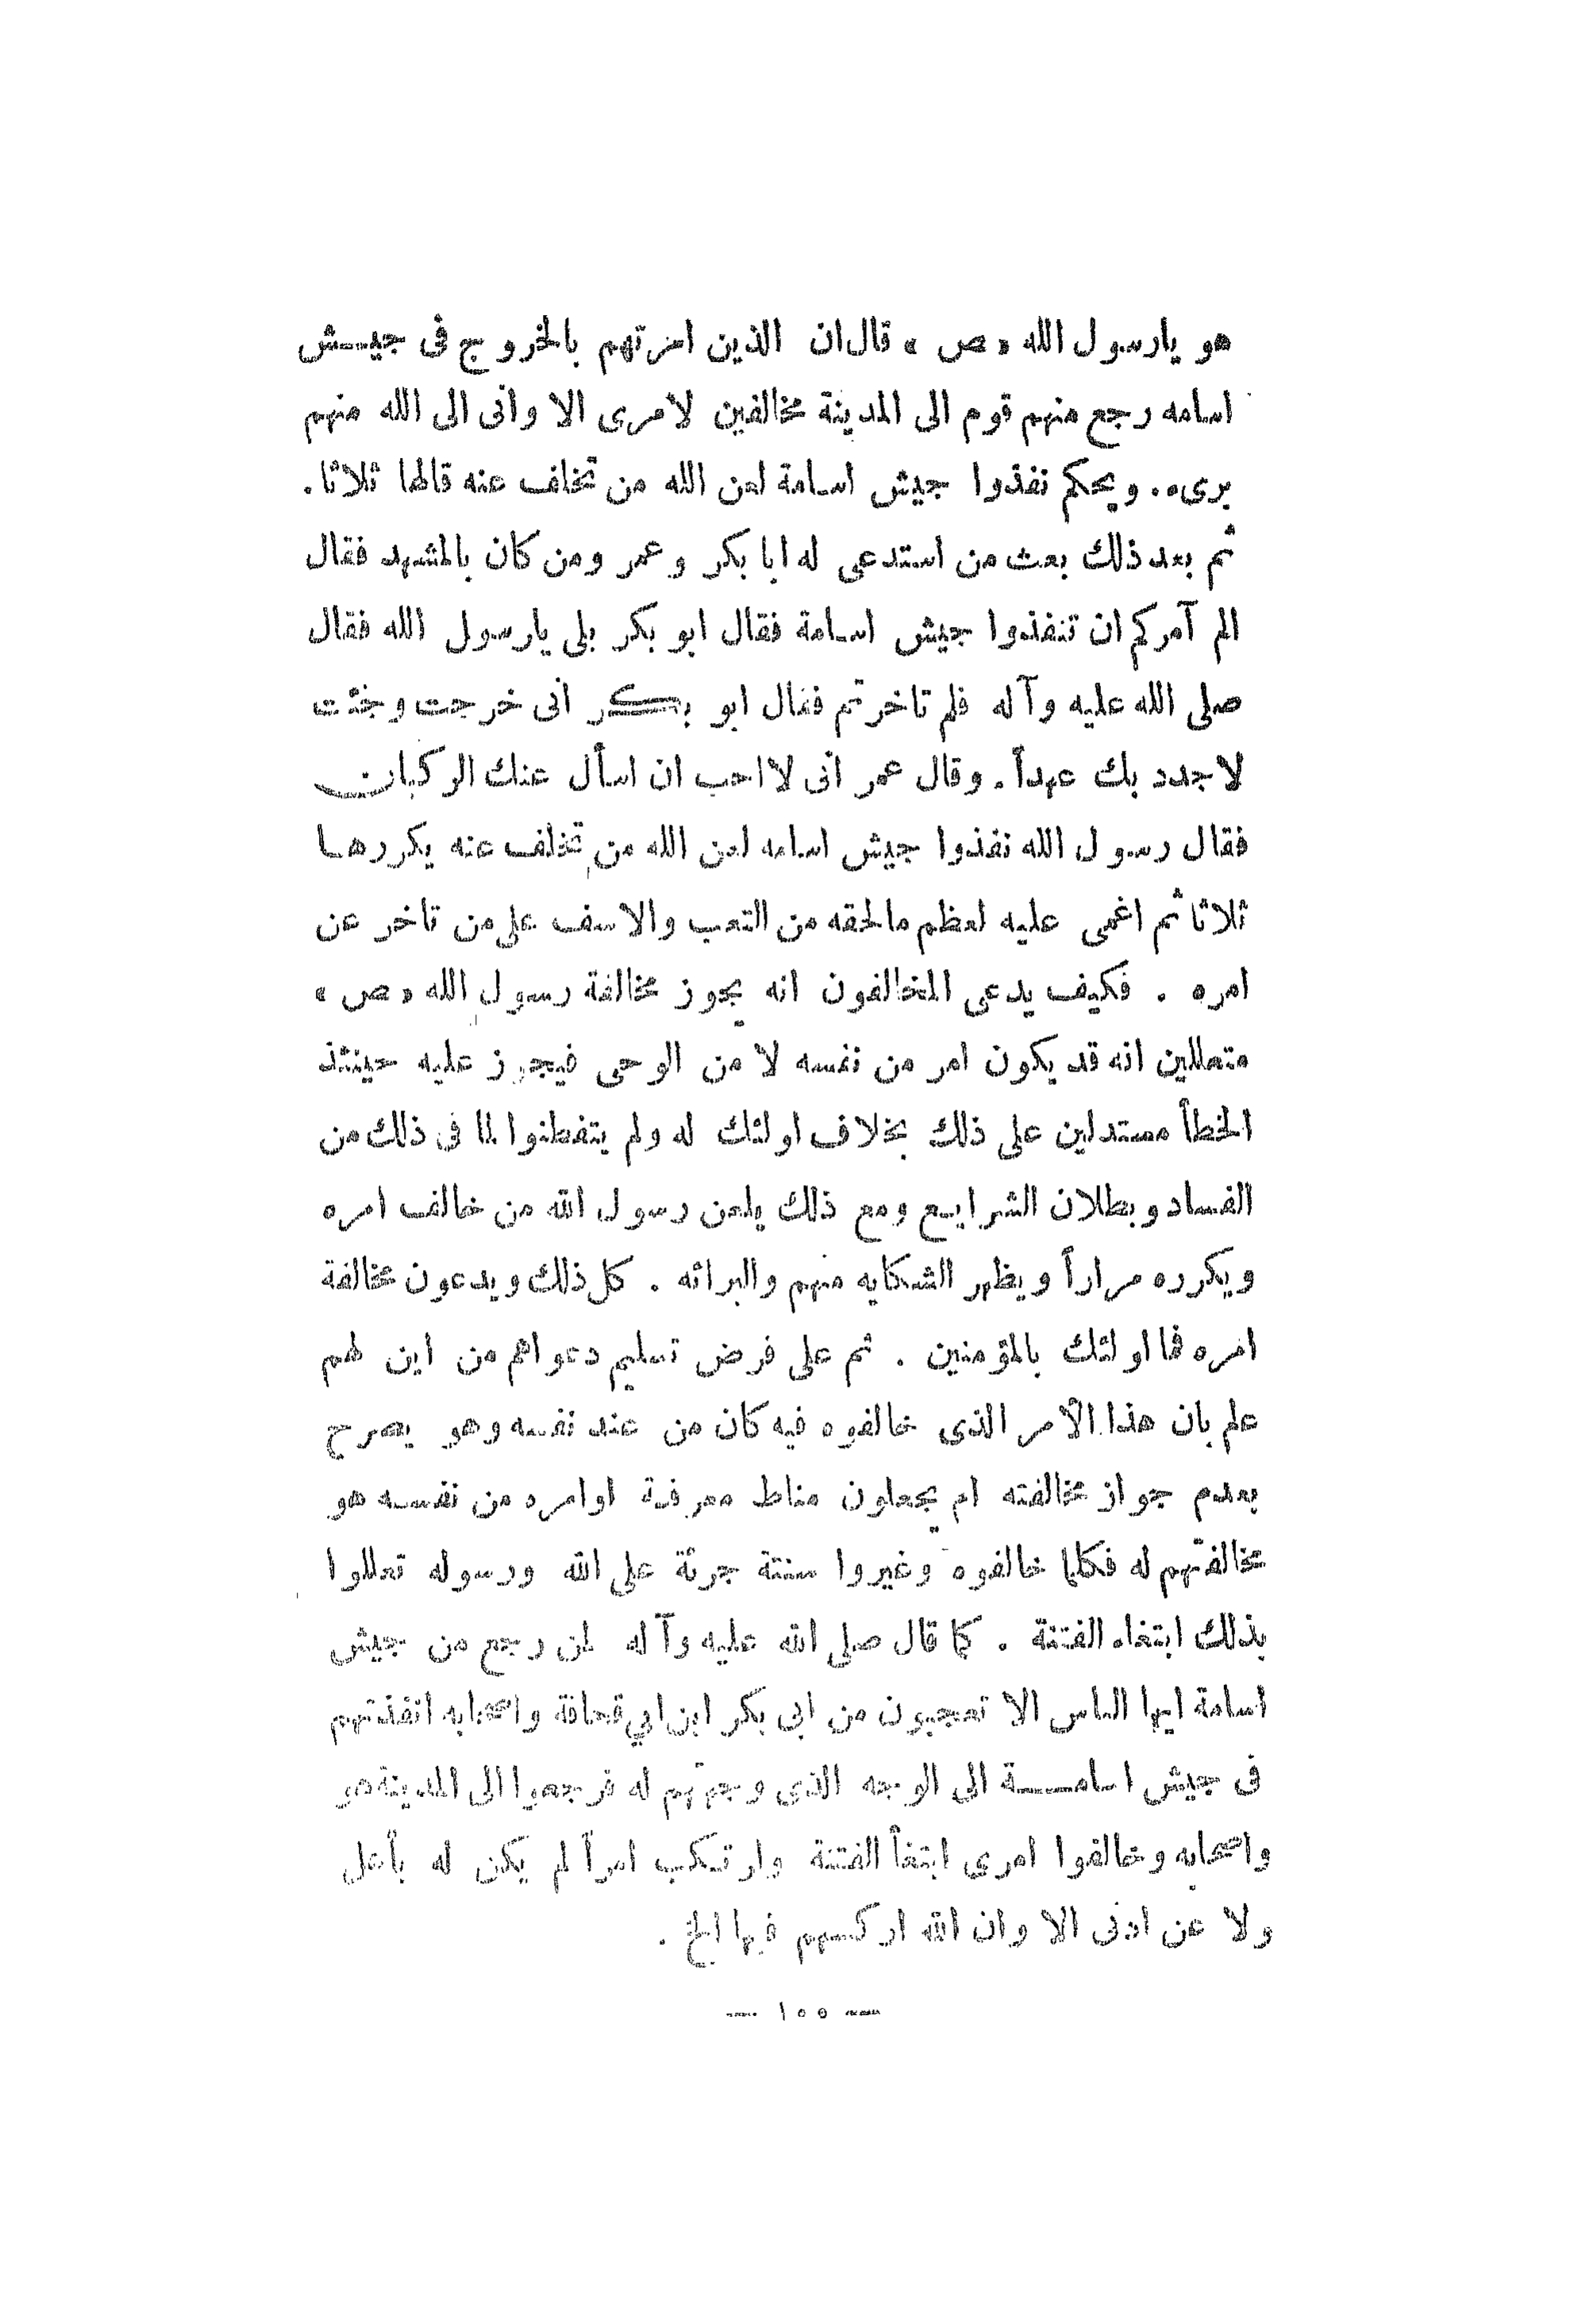 هو يارسول الله «ص» قال ان الذين امرتهم بالخروج فى جيــش
اسامه رجع منهم قوم الى المدينة مخالفين لامرى الا وانى الى الله منهم
برىء. ويحكم نفذوا جيش اسامة لعن الله من تخلف عنه قالها ثلاثا.
ثم بعد ذلك بعث من استدعى له ابا بكر وعمر ومن كان بالمشهد فقال
الم آمركم ان تنفذوا جيش اسامة فقال ابو بكر بلى يارسول الله فقال
صلى الله عليه وآله فلم تاخرتم فقال ابو بكر انى خرجت وجئت
لاجدد بك عهداً. وقال عمر انى لا احب ان اسأل عنك الركبان
فقال رسول الله نفذوا جيش اسامه لعن الله من تخلف عنه يكررهـا
ثلاثا ثم اغمى عليه لعظم مالحقه من التعب والاسف على من تاخر عن
امره . فكيف يدعى المخالفون انه يجوز مخالفة رسول الله «ص»
متعللين انه قد يكون امر من نفسه لا من الوحى فيجوز عليه حينئذ
الخطأ مستدلين على ذلك بخلاف اولئك له ولم يتفطنوا لما فى ذلك من
الفساد وبطلان الشرايـع ومع ذلك يلعن رسول الله من خالف امره
ويكرره مراراً ويظهر الشكايه منهم والبرائه . كل ذلك ويدعون مخالفة
امره فما اولئك بالمؤمنين . ثم على فرض تسليم دعواهم من اين لهم
علم بان هذا الأمر الذى خالفوه فيه كان من عند نفسه وهو يصرح
بعدم جواز مخالفته ام يجعلون مناط معرفة اوامره من نفسـه هو
مخالفتهم له فكلما خالفوه وغيروا سنتة جرئة على الله ورسوله تعللوا
بذلك ابتغاء الفتنة . كما قال صلى الله عليه وآله لمن رجع من جيش
اسامة ايها الناس الا تعجبون من ابى بكر ابن ابي قحافة واصحابه انفذتهم
فى جيش اسامــة الى الوجه الذى وجهتهم له فرجعوا الى المدينة هو
واصحابه وخالفوا امرى ابتغأ الفتنة وارتكب امراً لم يكن له بأهل
ولا عن اذنى الا وان الله اركسهم فيها الخ .
— ١٥٥ —